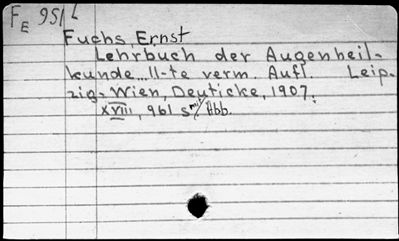 FE 95/L
Fuchs, Ernst
Lehrbuch der Augenheil-
kunde. 11-te verm. Aufl. Leip-
zig-Wien, Deuticke, 1907.
XVIII, 961 S. mit Abb.